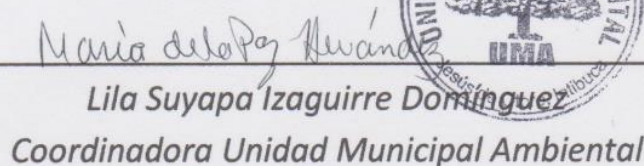 María de la Paz Hernández
UMA
Lila Suyapa Izaguirre Domínguez
Coordinadora Unidad Municipal Ambiental